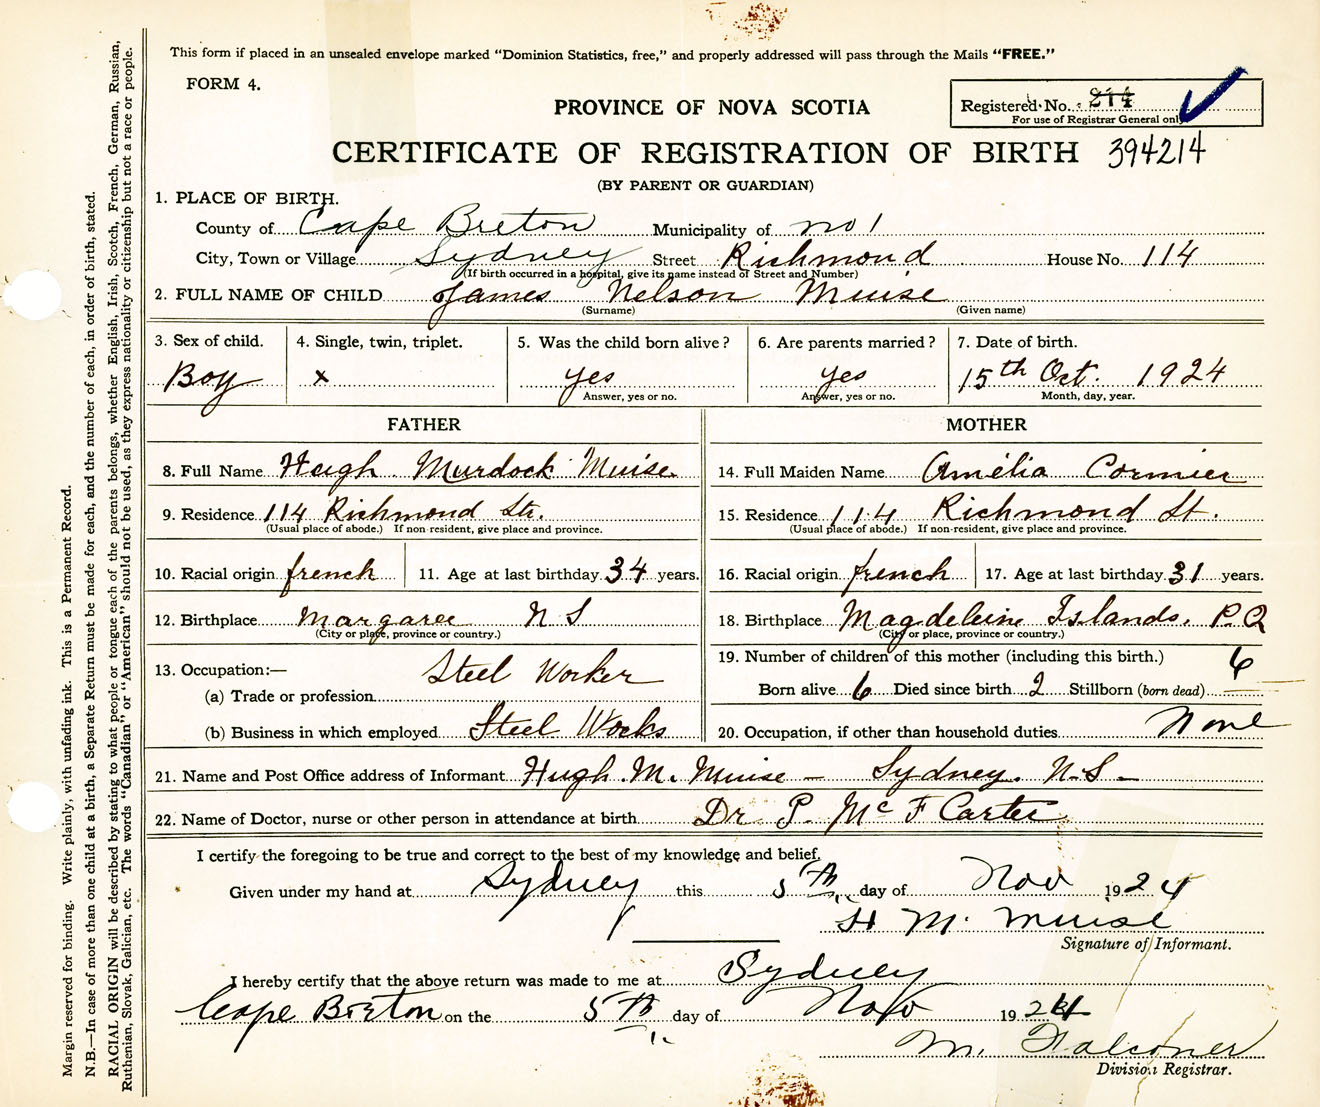 This form if placed in an unsealed envelope marked "Dominion Statistics, free," and properly addressed will pass through the Mails "FREE."
FORM 4.
PROVINCE OF NOVA SCOTIA
Registered No. 214
For use of Registrar General only
CERTIFICATE OF REGISTRATION OF BIRTH 394214
(BY PARENT OR GUARDIAN)
1. PLACE OF BIRTH.
County of Cape Breton Municipality of no 1
City, Town or Village Sydney Street Richmond House No. 114
(If birth occurred in a hospital, give its name instead of Street and Number)
2. FULL NAME OF CHILD James Nelson Muise
(Surname) (Given name)
3. Sex of child. 4. Single, twin, triplet. 5. Was the child born alive? 6. Are parents married? 7. Date of birth.
Boy x yes yes 15th Oct. 1924
Answer, yes or no. Answer, yes or no. Month, day, year.
FATHER MOTHER
8. Full Name Hugh Murdock Muise 14. Full Maiden Name Amélia Cormier
9. Residence 114 Richmond Str. 15. Residence 114 Richmond St.
(Usual place of abode.) If non-resident, give place and province. (Usual place of abode.) If non-resident, give place and province.
10. Racial origin french 11. Age at last birthday 34 years. 16. Racial origin french 17. Age at last birthday 31 years.
12. Birthplace Margaree N S 18. Birthplace Magdeleine Islands. P.Q
(City or place, province or country.) (City or place, province or country.)
13. Occupation:— Steel Worker 19. Number of children of this mother (including this birth.) 6
(a) Trade or profession Born alive 6 Died since birth 2 Stillborn (born dead) —
(b) Business in which employed Steel Works 20. Occupation, if other than household duties None
21. Name and Post Office address of Informant Hugh. M. Muise – Sydney. N.S –
22. Name of Doctor, nurse or other person in attendance at birth Dr P. Mc F Carter
I certify the foregoing to be true and correct to the best of my knowledge and belief.
Given under my hand at Sydney this 5th day of Nov 1924
H M. Muise
Signature of Informant.
I hereby certify that the above return was made to me at Sydney
Cape Breton on the 5th day of Nov 1924
M. Falconer
Division Registrar.
Margin reserved for binding. Write plainly, with unfading ink. This is a Permanent Record.
N.B.—In case of more than one child at a birth, a Separate Return must be made for each, and the number of each, in order of birth, stated.
RACIAL ORIGIN will be described by stating to what people or tongue each of the parents belongs, whether English, Irish, Scotch, French, German, Russian,
Ruthenian, Slovak, Galician, etc. The words "Canadian" or "American" should not be used, as they express nationality or citizenship but not a race or people.